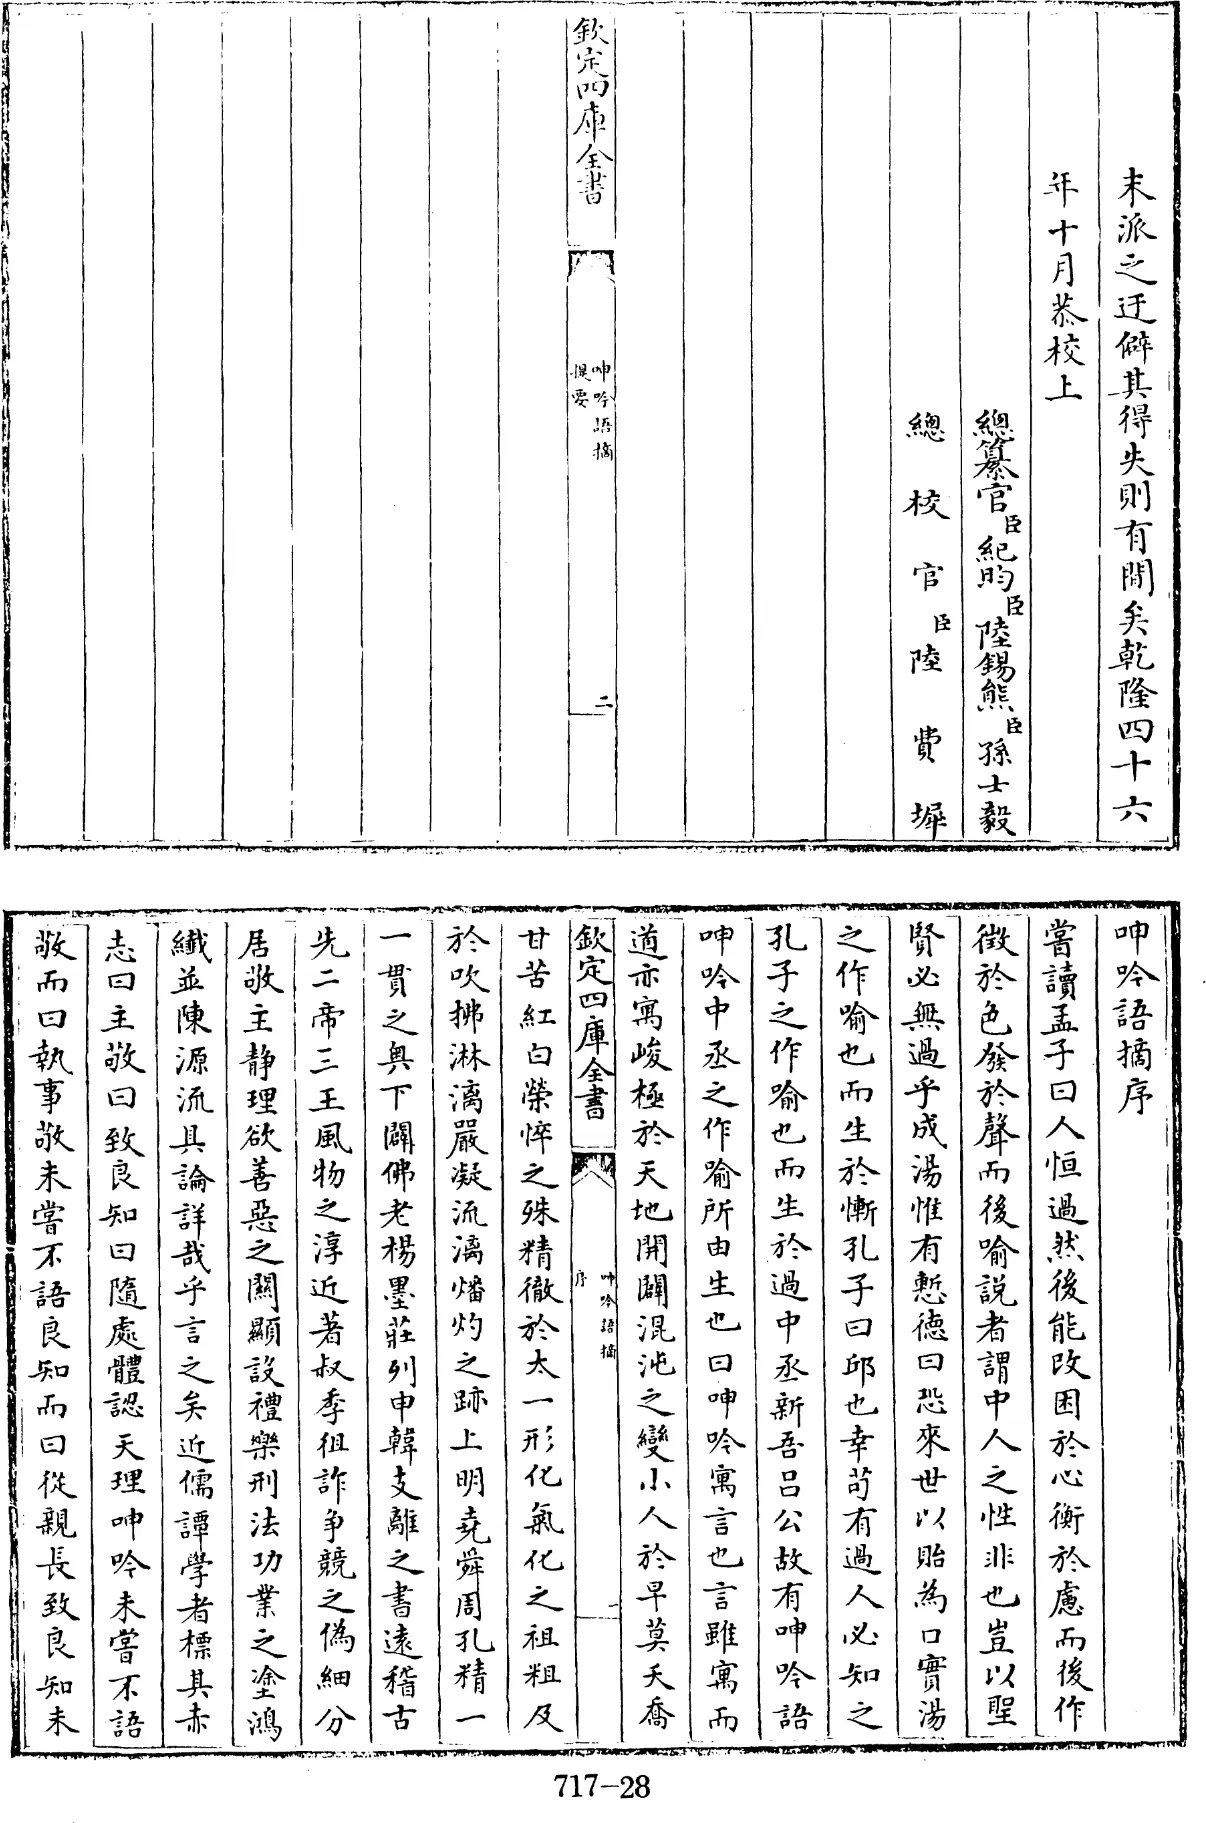 末派之迂僻其得失則有間矣乾隆四十六
年十月恭校上
總纂官臣紀昀臣陸錫熊臣孫士毅
總校官臣陸費墀
欽定四庫全書
呻吟語摘
提要
二
呻吟語摘序
嘗讀孟子曰人恒過然後能改困於心衡於慮而後作
徵於色發於聲而後喻説者謂中人之性非也豈以聖
賢必無過乎成湯惟有慙德曰恐來世以貽為口實湯
之作喻也而生於慚孔子曰邱也幸苟有過人必知之
孔子之作喻也而生於過中丞新吾吕公故有呻吟語
呻吟中丞之作喻所由生也曰呻吟寓言也言雖寓而
道亦寓峻極於天地開闢混沌之變小人於早莫夭喬
欽定四庫全書
呻吟語摘
序
一
甘苦紅白榮悴之殊精徹於太一形化氣化之祖粗及
於吹拂淋漓嚴凝流漓燔灼之跡上明堯舜周孔精一
一貫之奥下闢佛老楊墨莊列申韓支離之書遠稽古
先二帝三王風物之淳近著叔季徂詐争競之偽細分
居敬主静理欲善惡之關顯設禮樂刑法功業之塗鴻
纖並陳源流具論詳哉乎言之矣近儒譚學者標其赤
志曰主敬曰致良知曰隨處體認天理呻吟未嘗不語
敬而曰執事敬未嘗不語良知而曰從親長致良知未
717-28